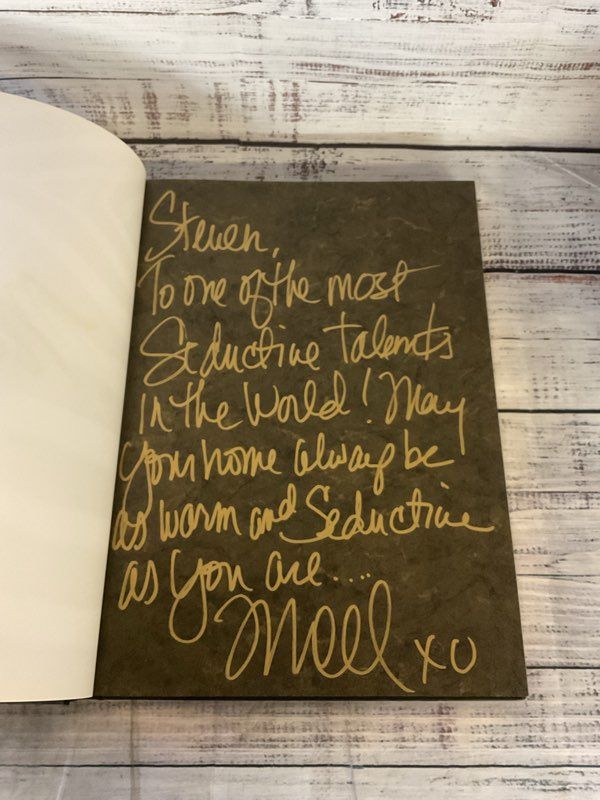 Steven,
To one of the most
Seductive talents
In the World! May
your home always be
as warm and Seductive
as you are....
XO